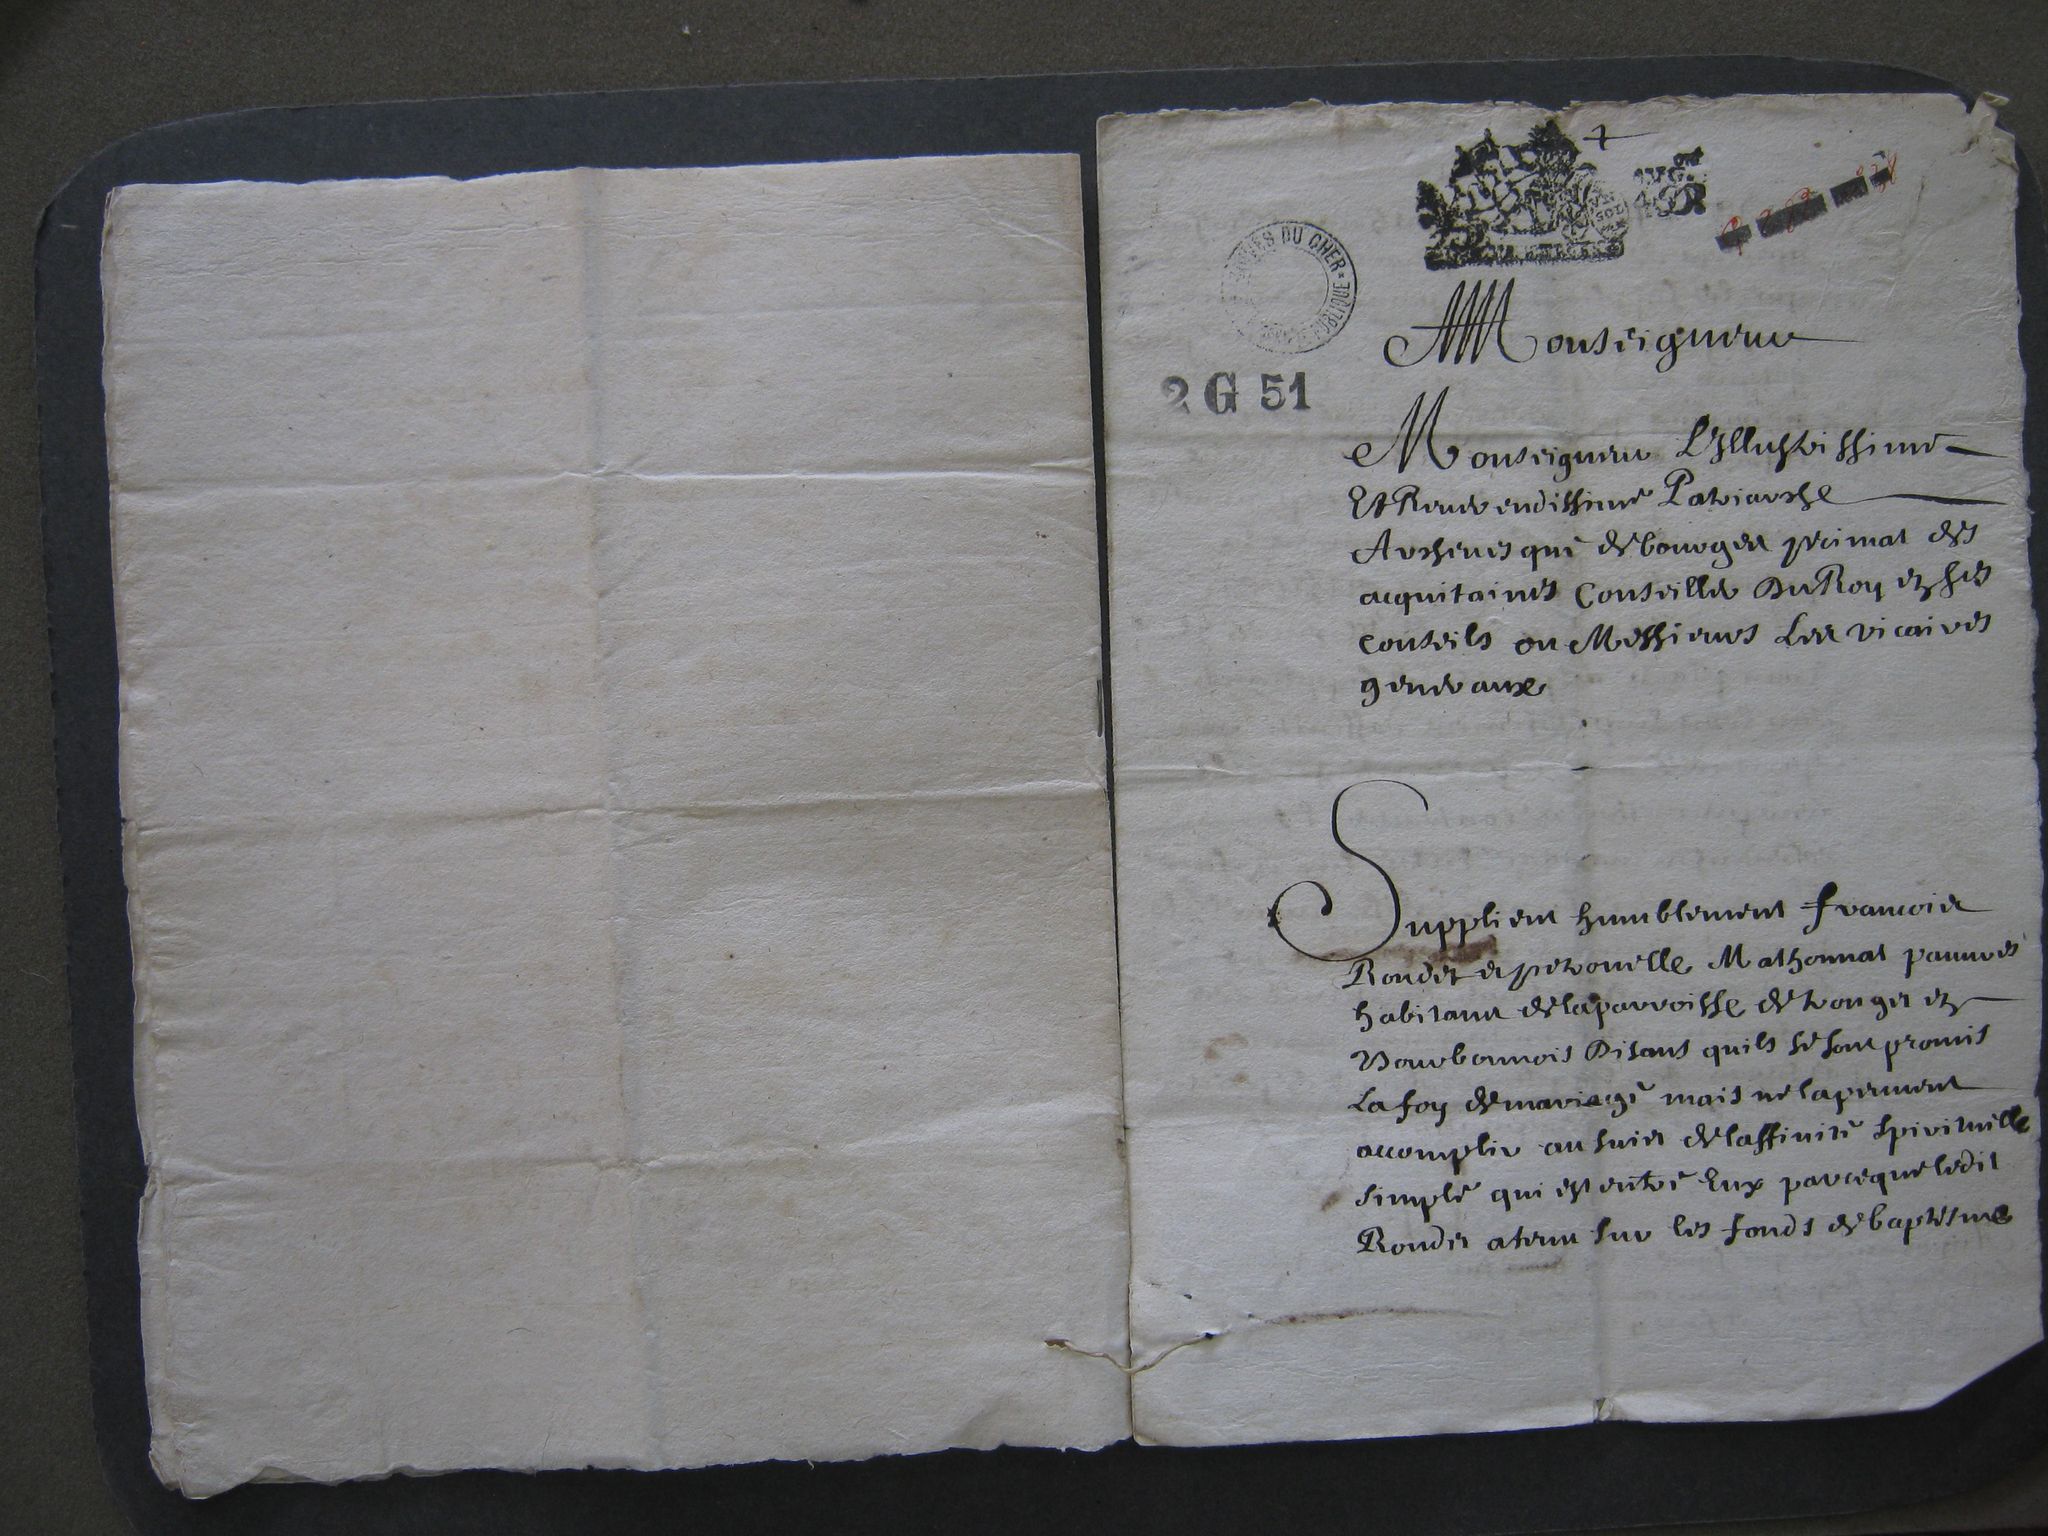 ARCHIVES DU CHER * PUBLIQUE
UN SOL
2 G 51
A Monseigneur
Monseigneur L'Illustrissime
Et Reverendissime Patriarche
Archevesque de bourges primat des
acquitaines Conseiller Du Roy en ses
Conseils ou Messieurs Les vicaires
generaux
Supplient humblement francois
Rondet et petronille Mathonnat pauvres
habitans de la parroisse de tronget en
Bourbonnois Disans quils se sont promis
La foy de mariage mais ne la peuvent
accomplir au suiet de laffinite spirituelle
simple qui est entre Eux parceque ledit
Rondet a tenu sur les fonds de baptesme